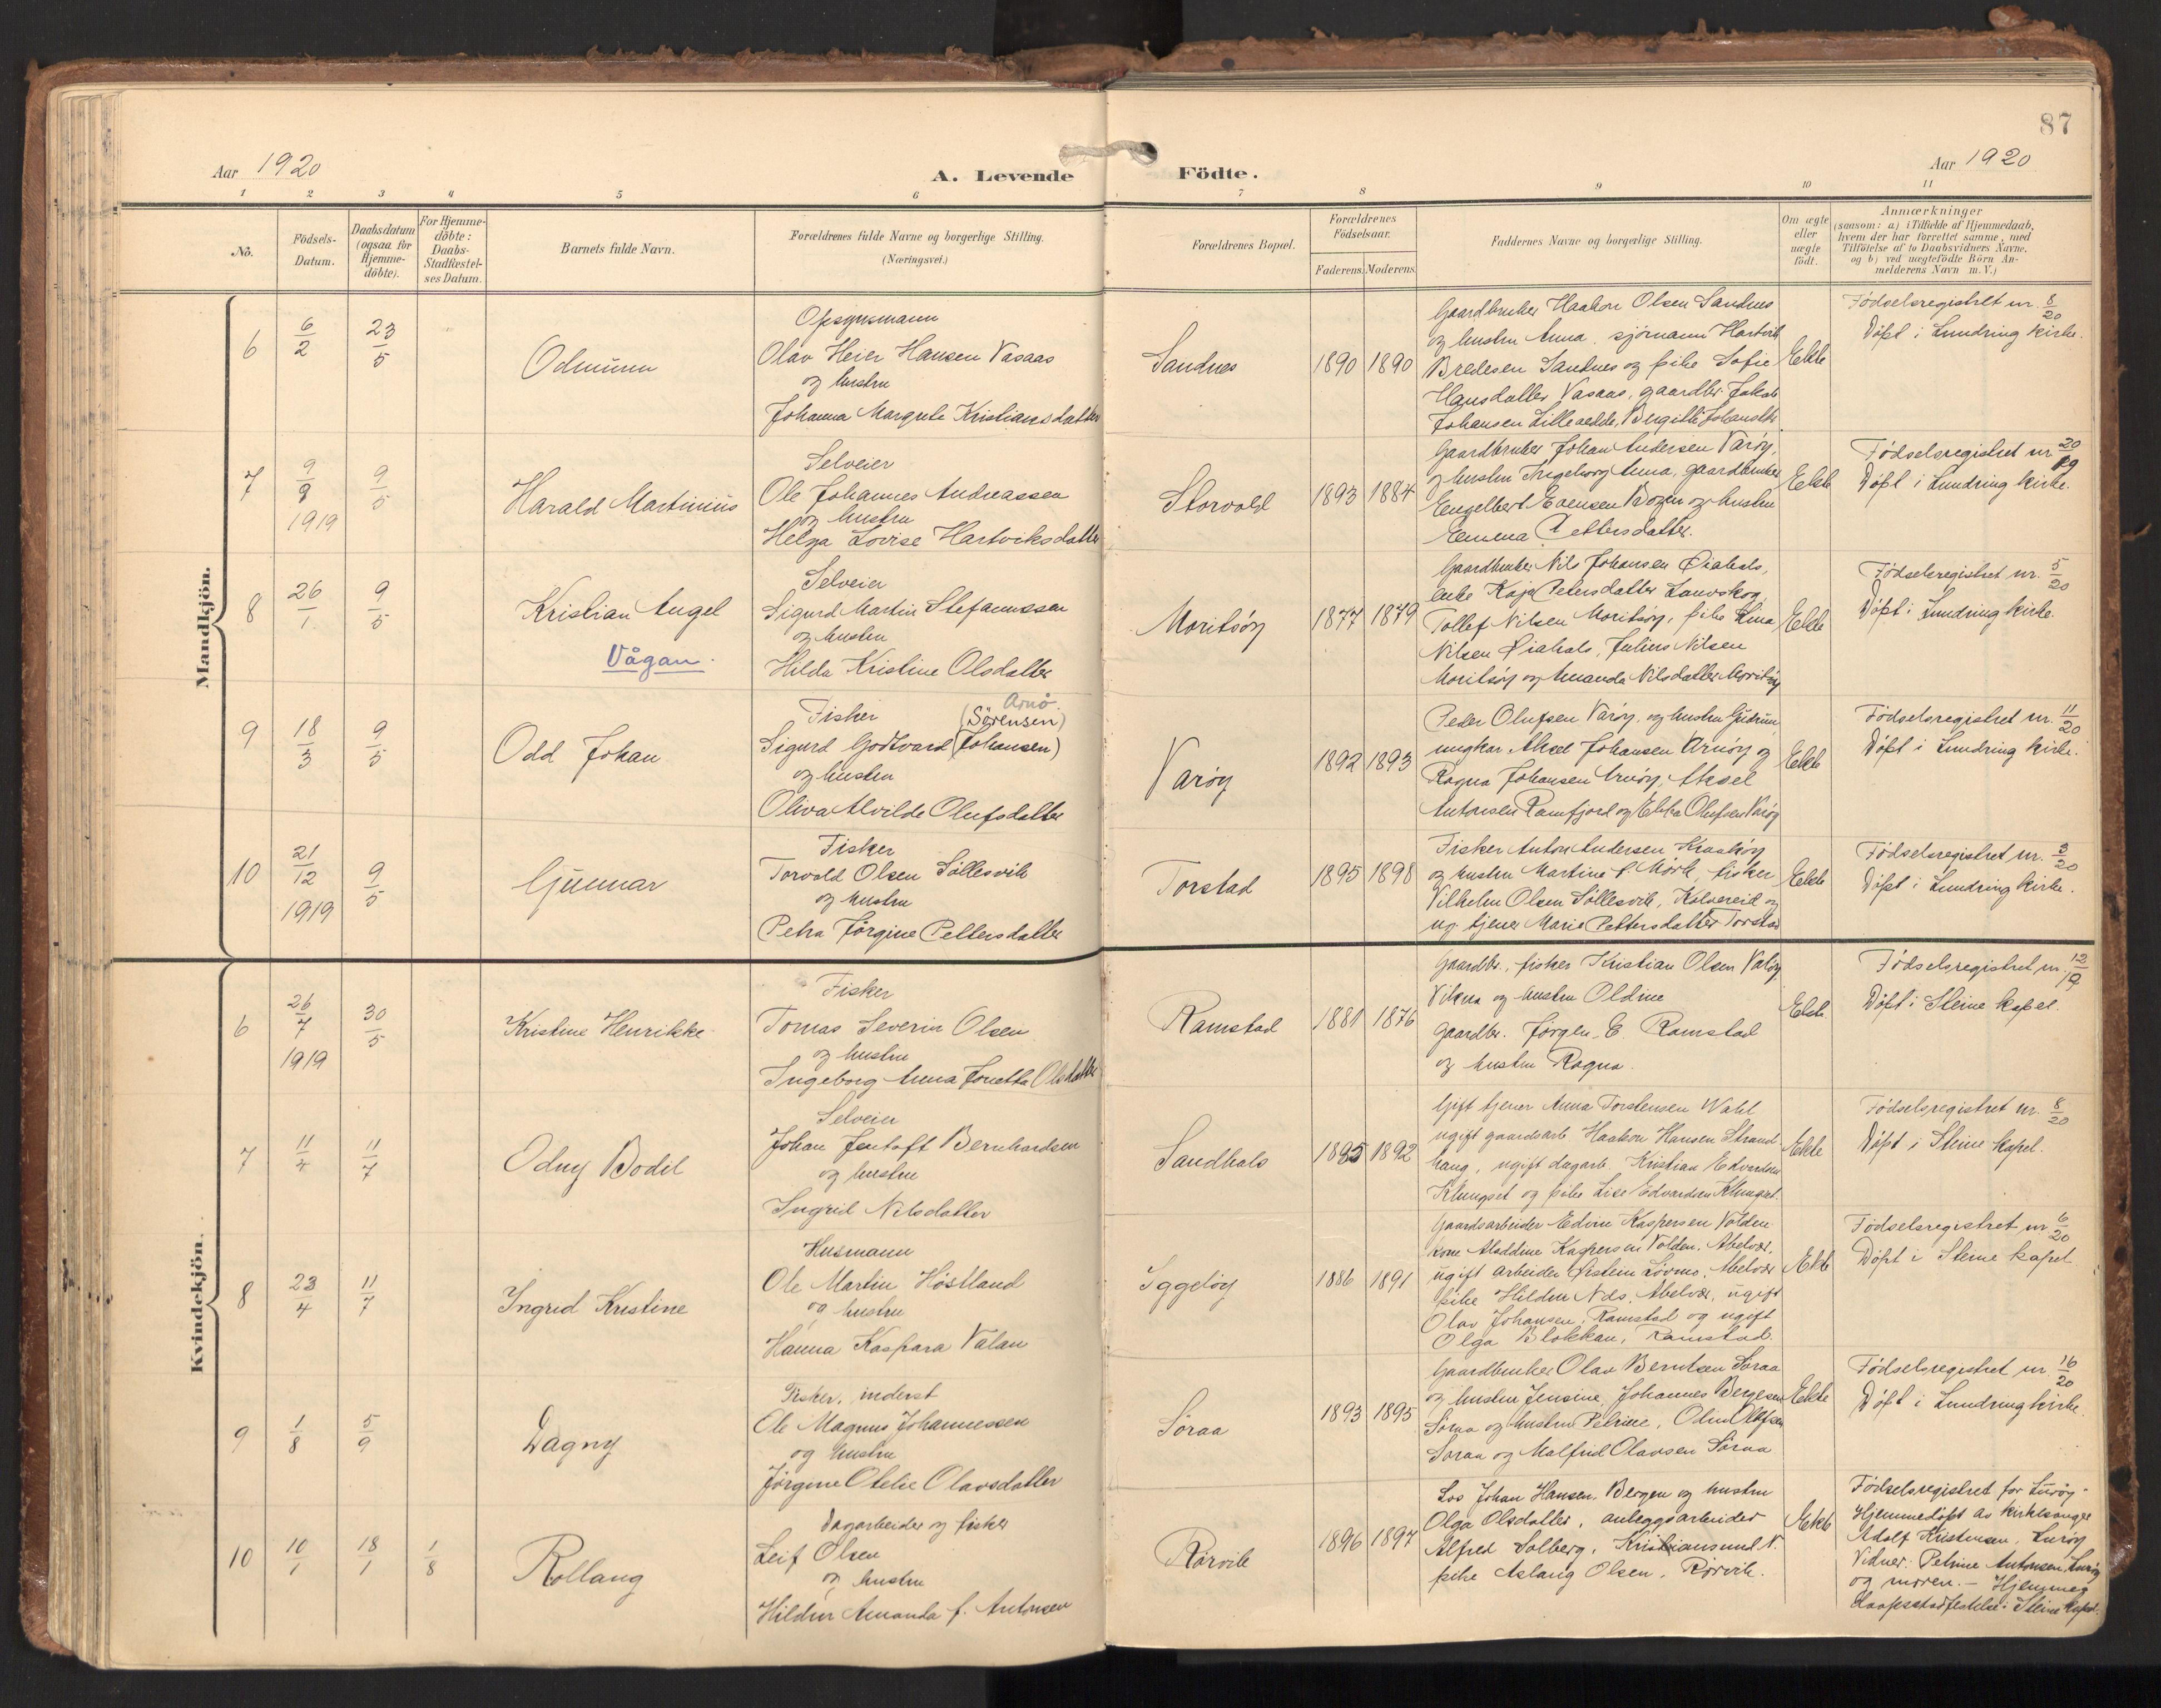 87
Aar 1920
A. Levende
Födte.
Aar 1920
1 2 3 4 5 6 7 8 9 10 11
No.
Födsels-
Datum.
Daabsdatum
(ogsaa for
Hjemme-
döbte).
For Hjemme-
döbte:
Daabs-
Stadfæstel-
ses Datum.
Barnets fulde Navn.
Forældrenes fulde Navne og borgerlige Stilling.
(Næringsvei.)
Forældrenes Bopæl.
Forældrenes
Födselsaar.
Faderens. Moderens.
Faddernes Navne og borgerlige Stilling.
Om ægte
eller
uægte
födt.
Anmærkninger
(saasom: a) i Tilfælde af Hjemmedaab,
hvem der har forrettet samme, med
Tilföielse af to Daabsvidners Navne.
og b) ved uægtefödte Börn An-
melderens Navn m. V.)
Mandkjön.
6
6/2
23/5
Odmunn
Opsynsmann
Olav Heier Hansen Vasaas
og hustru
Johanna Margrete Kristiansdatter
Sandnes
1890 1890
Gaardbruker Haakon Olsen Sandnes
og hustru Anna, sjömann Hartvik
Bredesen Sandnes og pike Sofie
Hansdatter Vasaas, gaardbr. Jakob
Johansen Lilleaelde, Bergitte Johansdtr.
Ekte
Födselsregistret nr. 8/20
Döpt i Lundring kirke.
7
9/9
1919
9/5
Harald Martinius
Selveier
Ole Johannes Andreassen
og hustru
Helga Lovise Hartviksdatter
Storvold
1893 1884
Gaardbruker Johan Andersen Varöy,
og hustru Ingeborg Anna, gaardbruker
Engelbert Evensen Bogen og hustru
Emma Pettersdatter.
Ekte
Födselsregistret nr 20/19
Döpt i Lundring kirke.
8
26/1
9/5
Kristian Angel
Vågan.
Selveier
Sigurd Martin Stefanussen
og hustru
Hilda Kristine Olsdatter
Moritsöy
1877 1879
Gaardbruker Nils Johansen Öiahals,
enke Kaja Petersdatter Lauvskog,
Tollef Nilsen Moritsöy, pike Lina
Nilsen Öiahals, Julius Nilsen
Moritsöy og Amanda Nilsdatter Moritsöy
Ekte
Födselsregistret nr. 5/20
Döpt i Lundring kirke.
9
18/3
9/5
Odd Johan
Arnö
Fisker (Sörensen)
Sigurd Godtvard (Johansen)
og hustru
Oliva Alvilde Olufsdatter
Varöy
1892 1893
Peder Olufsen Varöy, og hustru Gudrun,
ungkar Aksel Johansen Arnöy og
Ragna Johansen Arnöy, Aksel
Antonsen Ramfjord og Ekka Olufsen Varöy
Ekte
Födselsregistret nr. 11/20
Döpt i Lundring kirke.
10
21/12
1919
9/5
Gunnar
Fisker
Torvald Olsen Söllesvik
og hustru
Petra Jörgine Pettersdatter
Torstad
1895 1898
Fisker Anton Andersen Kraaköy
og hustru Martine f. Mörk, fisker
Vilhelm Olsen Söllesvik, Kolvereid og
ug. tjener Marie Pettersdatter Torstad
Ekte
Födselsregistret nr. 3/20
Döpt i Lundring kirke.
Kvindekjön.
6
26/7
1919
30/5
Kristine Henrikke
Fisker
Tomas Severin Olsen
og hustru
Ingeborg Anna Jonetta Olsdatter
Ramstad
1881 1876
Gaardbr., fisker Kristian Olsen Valöy
Vikna og hustru Oldine
gaardbr. Jörgen E. Ramstad
og hustru Ragna.
Ekte
Födselsregistret nr. 12/19
Döpt i Steine kapel.
7
11/4
11/7
Odny Bodil
Selveier
Johan Jentoft Bernhardsen
og hustru
Ingrid Nilsdatter
Sandhals
1885 1892
Gift tjener Anna Torstensen Wahl
ugift gaardsarb. Haakon Hansen Strand-
haug, ugift dagarb. Kristian Edvardsen
Klungset og pike Lise Edvardsen Klungset.
Ekte
Födselsregistret nr. 8/20
Döpt i Steine kapel.
8
23/4
11/7
Ingrid Kristine
Husmann
Ole Martin Höstland
og hustru
Hanna Kaspara Valan
Iggelöy
1886 1891
Gaardsarbeider Edvin Kaspersen Volden
kone Aladdine Kaspersen Volden, Abelvær,
ugift arbeider Öistein Lövmo, Abelvær
pike Hildur Nils. Abelvær, ugift
Olav Johansen, Ramstad og ugift
Olga Blokkan, Ramstad.
Ekte
Födselsregistret nr 6/20
Döpt i Steine kapel
9
1/8
5/9
Dagny
Fisker, inderst
Ole Magnus Johannessen
og hustru
Jörgine Otelie Olavsdatter
Söraa
1893 1895
Gaardbruker Olav Berntsen Söraa
og hustru Jensine, Johannes Bergesen
Söraa og hustru Petrine, Olin Olafsen
Söraa og Malfrid Olavsen Söraa
Ekte
Födselsregistret nr 16/20
Döpt i Lundring kirke.
10
10/1
18/1
1/8
Rollaug
Dagarbeider og fisker
Leif Olsen
og hustru
Hildur Amanda f. Antonsen
Rörvik
1896 1897
Los Johan Hansen, Bergen og hustru
Olga Olsdatter, anleggsarbeider
Alfred Solberg, Kristiansund N.
pike Aslaug Olsen, Rörvik.
Ekte
Födselsregistret for Luröy.
Hjemmedöpt av kirkesanger
Adolf Kristensen, Luröy
Vidner: Petrine Antonsen Luröy
og moren. – Hjemme-
daapsstadfestelse i Steine kapel.